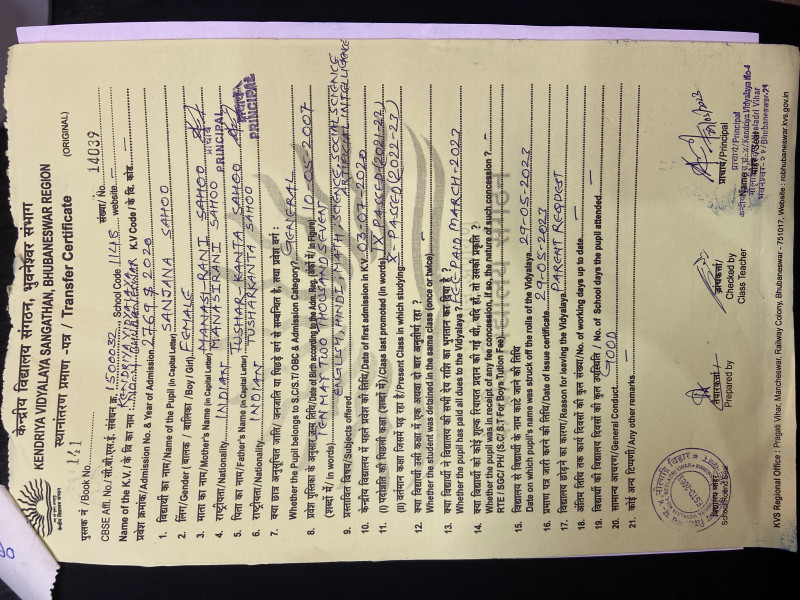 केन्द्रीय विद्यालय संगठन, भुवनेश्वर संभाग
KENDRIYA VIDYALAYA SANGATHAN, BHUBANESWAR REGION
स्थानांतरण प्रमाण -पत्र / Transfer Certificate
(ORIGINAL)
पुस्तक नं /Book No. 141 संख्या/ No. 14039
CBSE Affl. No./ सी.बी.एस.ई. संबंधन क्र. 1500032 School Code 1148 website. —
Name of the K.V. / के वि का नाम : KENDRIYA VIDYALAYA NO.4 BHUBANESWAR KV Code / के वि. कोड. —
प्रवेश क्रमांक /Admission No. & Year of Admission. 2769 & 2020
1. विद्यार्थी का नाम/Name of the Pupil (in Capital Letter) SANJANA SAHOO
2. लिंग/Gender ( बालक / बालिका / Boy / Girl) FEMALE
3. माता का नाम/Mother's Name (in Capital Letter) MANASI RANI SAHOO
MANASIRANI SAHOO प्राचार्य PRINCIPAL
4. राष्ट्रीयता/Nationality INDIAN
5. पिता का नाम/Father's Name (in Capital Letter) TUSHAR KANTA SAHOO
TUSHARKANTA SAHOO प्राचार्य PRINCIPAL
6. राष्ट्रीयता/Nationality INDIAN
7. क्या छात्र अनुसूचित जाति, जनजाति या पिछड़े वर्ग से सम्बन्धित है, तथा प्रवेश वर्ग :
Whether the Pupil belongs to S.C/S.T/ OBC & Admission Category? GENERAL
8. प्रवेश पुस्तिका के अनुसार जन्म तिथि/Date of Birth according to the Adm. Reg. (अंकों में/ in Figure) 10-05-2007
(शब्दों में/ in words) TEN MAY TWO THOUSAND SEVEN
9. प्रस्तावित विषय/Subjects offered. ENGLISH, HINDI, MATH, SCIENCE, SOCIAL SCIENCE
ARTIFICIAL INTELLIGENCE
10. केन्द्रीय विद्यालय में पहला प्रवेश की तिथि/Date of first admission in KV. 03-07-2020
11. (I) पदोन्नति की पिछली कक्षा (शब्दों में)/Class last promoted (in words). IX PASSED (2021-22)
(II) वर्तमान कक्षा जिसमें पढ़ रहा है/Present Class in which studying X-PASSED (2022-23)
12. क्या विद्यार्थी उसी कक्षा में एक अथवा दो बार अनुत्तीर्ण रहा ?
Whether the student was detained in the same class (once or twice). —
13. क्या विद्यार्थी ने विद्यालय की सभी देय राशि का भुगतान कर दिया है ?
Whether the pupil has paid all dues to the Vidyalaya ? FEE PAID MARCH-2023
14. क्या विद्यार्थी को कोई शुल्क रियायत प्रदान की गई थी, यदि हां, तो उसकी प्रकृति ?
Whether the pupil was in receipt of any fee concession, if so, the nature of such concession ? —
RTE / SGC/ PH (S.C/ S.T For Boys Tution Fee)
15. विद्यालय से विद्यार्थी के नाम काटे जाने की तिथि
Date on which pupil's name was struck off the rolls of the Vidyalaya. 29-05-2023
16. प्रमाण पत्र जारी करने की तिथि/Date of issue certificate. 29-05-2023
17. विद्यालय छोड़ने का कारण/Reason for leaving the Vidyalaya. PARENT REQUEST
18. अंतिम तिथि तक कार्य दिवसों की कुल संख्या/No. of working days up to date. —
19. विद्यार्थी की विद्यालय दिवसों की कुल उपस्थिति / No. of School days the pupil attended. —
20. सामान्य आचरण/General Conduct. GOOD
21. कोई अन्य टिप्पणी/Any other remarks. —
Prepared by
Checked by
Class Teacher
प्राचार्य/Principal
प्राचार्य/Principal
Kendriya Vidyalaya No-4
Bhubaneswar
KVS Regional Office : Pragati Vihar, Mancheswar, Railway Colony, Bhubaneswar - 751017, Website : robhubaneswar.kvs.gov.in